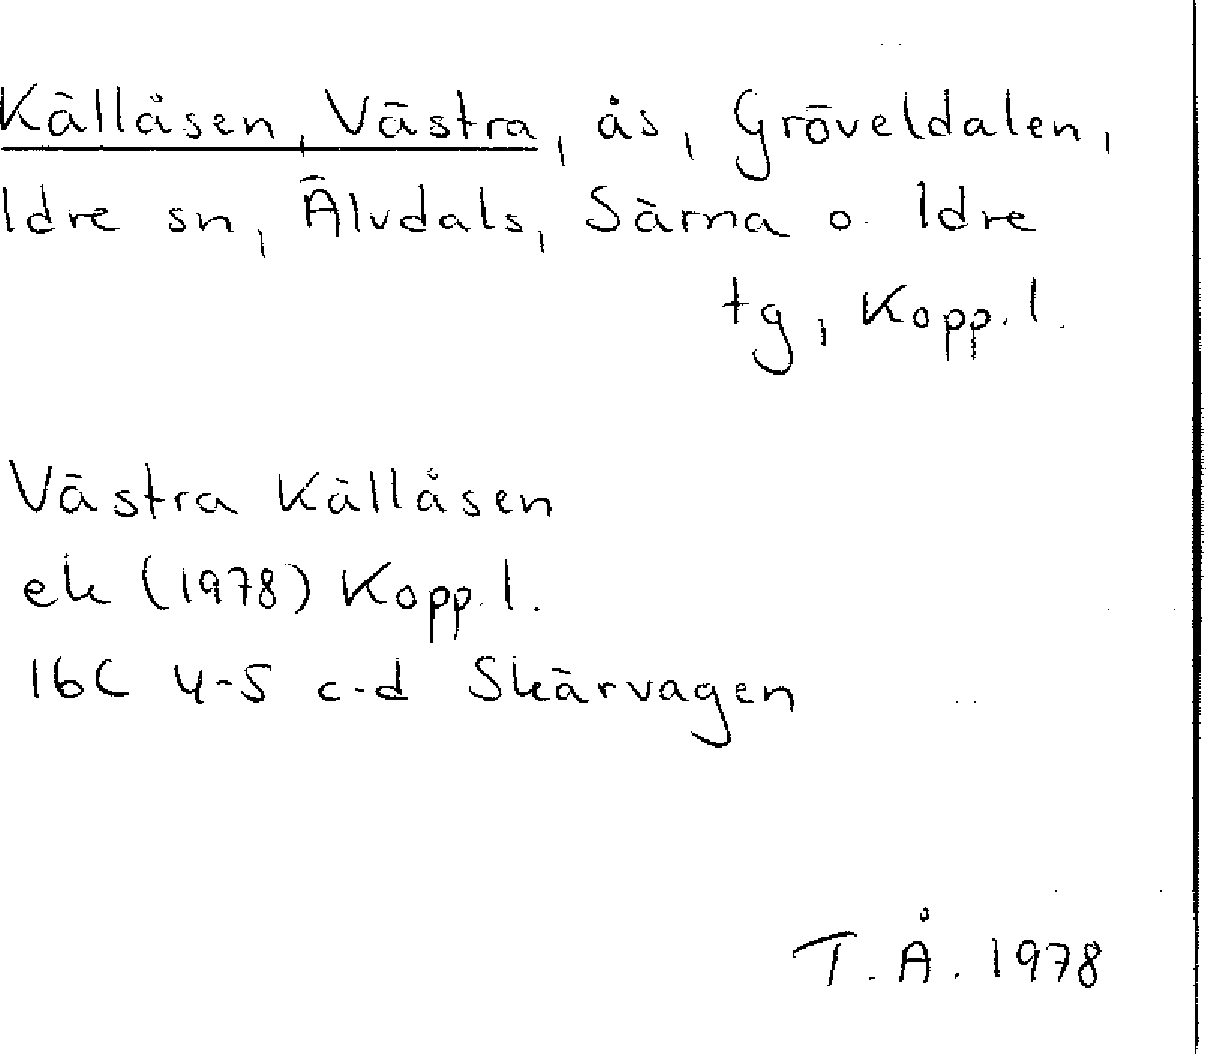 Källåsen, Västra, ås, Gröveldalen,
Idre sn, Älvdals, Särna o. Idre
tg, Kopp. l.
Västra Källåsen
ek (1978) Kopp. l.
16C 4-5 c-d Skärvagen
T. Å. 1978